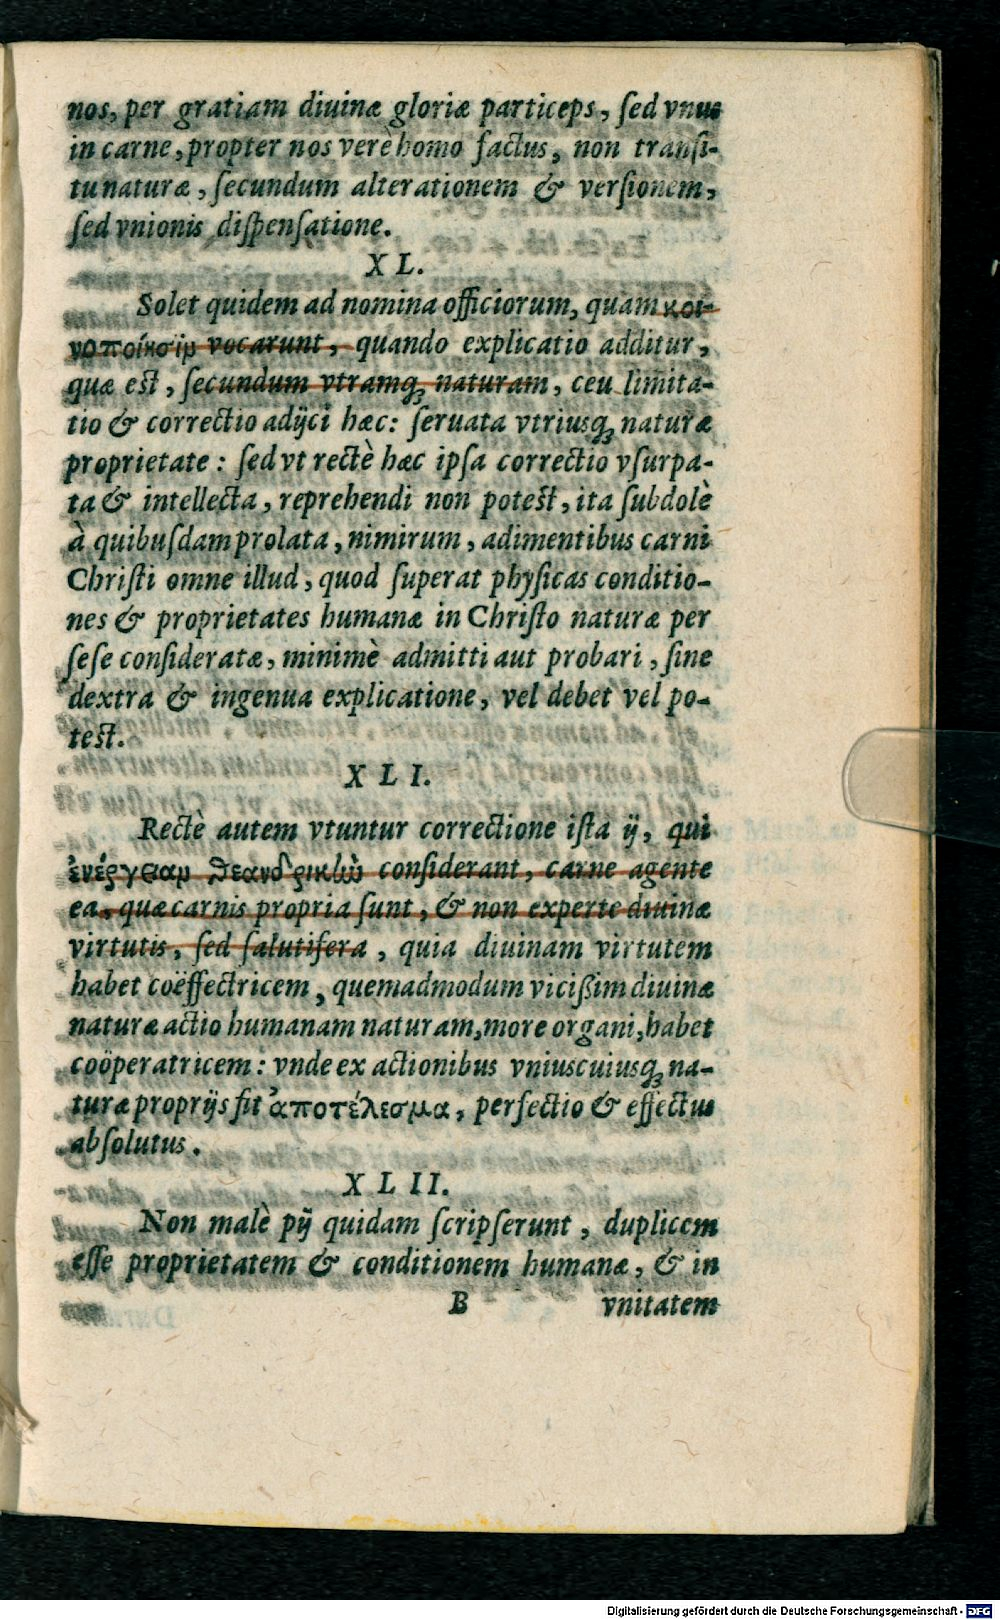 nos, per gratiam diuinæ gloriæ particeps, ſed vnus
in carne, propter nos verè homo factus, non tranſi-
tu naturæ, ſecundum alterationem & verſionem,
ſed vnionis diſpenſatione.
XL.
Solet quidem ad nomina officiorum, quam κοι-
νοποίησιμ vocarunt, quando explicatio additur,
quæ est, ſecundum vtramq; naturam, ceu limita-
tio & correctio adijci hæc: ſeruata vtriusq; naturæ
proprietate: ſed vt rectè hæc ipſa correctio vſurpa-
ta & intellecta, reprehendi non potest, ita ſubdolè
à quibuſdam prolata, nimirum, adimentibus carni
Chriſti omne illud, quod ſuperat phyſicas conditio-
nes & proprietates humanæ in Chriſto naturæ per
ſeſe conſideratæ, minimè admitti aut probari, ſine
dextra & ingenua explicatione, vel debet vel po-
test.
XLI.
Rectè autem vtuntur correctione iſta ij, qui
ἐνέργειαμ θεανδρικὼ conſiderant, carne agente
ea, quæ carnis propria ſunt, & non experte diuinæ
virtutis, ſed ſalutifera, quia diuinam virtutem
habet coëffectricem, quemadmodum viciſsim diuinæ
naturæ actio humanam naturam, more organi, habet
coöperatricem: vnde ex actionibus vniuscuiusq; na-
turæ proprijs fit ἀποτέλεσμα, perfectio & effectus
abſolutus.
XLII.
Non malè pij quidam ſcripſerunt, duplicem
eſſe proprietatem & conditionem humanæ, & in
B vnitatem
Digitalisierung gefördert durch die Deutsche Forschungsgemeinschaft - DFG